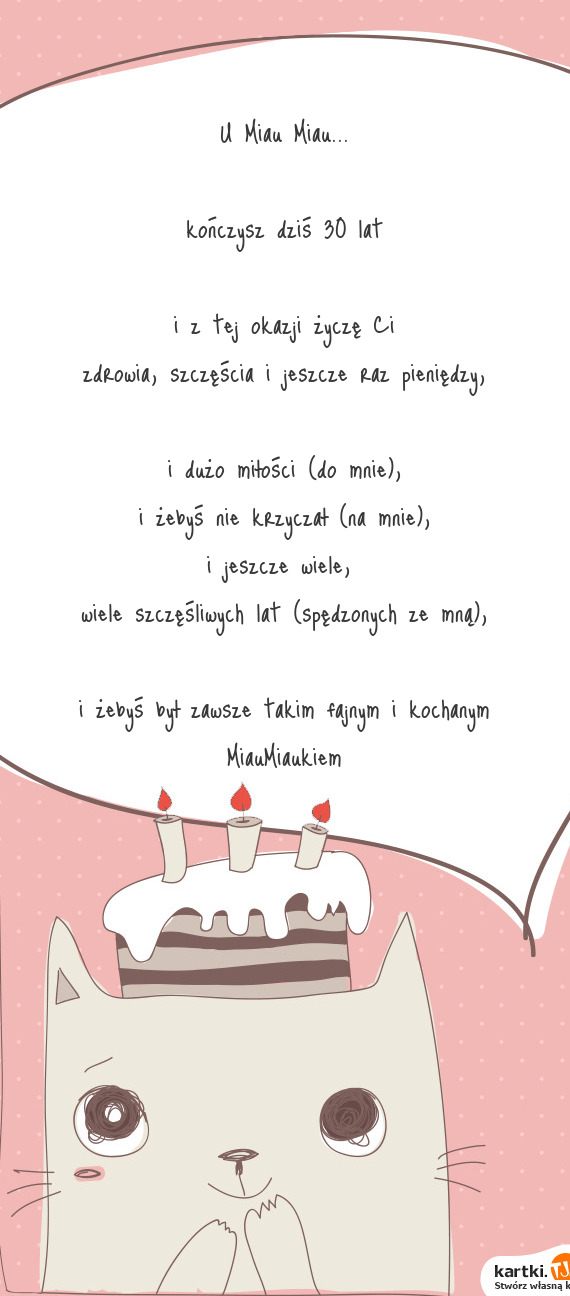 U Miau Miau...
kończysz dziś 30 lat
i z tej okazji życzę Ci
zdrowia, szczęścia i jeszcze raz pieniędzy,
i dużo miłości (do mnie),
i żebyś nie krzyczał (na mnie),
i jeszcze wiele,
wiele szczęśliwych lat (spędzonych ze mną),
i żebyś był zawsze takim fajnym i kochanym
MiauMiaukiem
kartki.TJ
Stwórz własną k